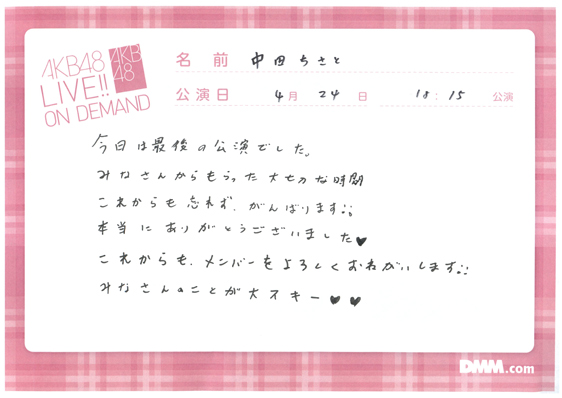 AKB48
LIVE!!
ON DEMAND
AKB
48
名前 中田ちさと
公演日 4月24日 18:15 公演
今日は最後の公演でした。
みなさんからもらった大切な時間
これからも忘れず、がんばります
本当にありがとうございました♥
これからも、メンバーをよろしくおねがいします
みなさんのことが大スキー♥♥
DMM.com